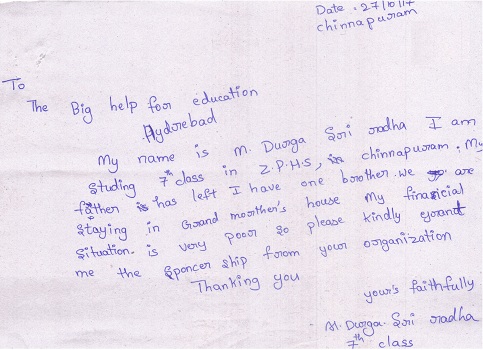 Date : 27/10/17
chinnapuram
To
The Big help for education
Hyderebad
My name is M. Durga Sri radha I am
Studing 7th class in Z.P.H.S, chinnapuram. My
father has left I have one borother. we are
Staying in Grand moorther's house My financial
Situation. is very poor so please kindly grant
me the Sponcer ship from your organization
Thanking you
your's faithfully
M. Durga. Sri radha
7th class